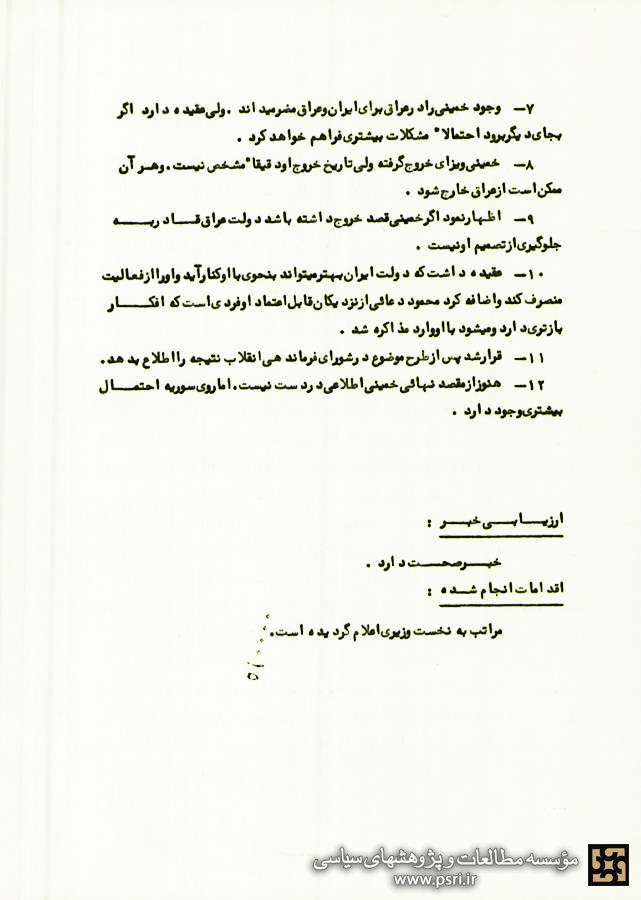 ۷— وجود خمینی را در عراق برای ایران و عراق مضر میداند . ولی عقیده دارد اگر
بجای دیگر برود احتمالا" مشکلات بیشتری فراهم خواهد کرد .
۸— خمینی ویزای خروج گرفته ولی تاریخ خروج او دقیقا" مشخص نیست . و هر آن
ممکن است از عراق خارج شود .
۹— اظهار نمود اگر خمینی قصد خروج داشته باشد دولت عراق قادر به
جلوگیری از تصمیم او نیست .
۱۰— عقیده داشت که دولت ایران بهتر میتواند بنحوی با او کنار آید و او را از فعالیت
منصرف کند و اضافه کرد محمود دعائی از نزدیکان قابل اعتماد او فردی است که افکار
بازتری دارد و میشود با او وارد مذاکره شد .
۱۱— قرار شد پس از طرح موضوع در شورای فرماندهی انقلاب نتیجه را اطلاع بدهد .
۱۲— هنوز از مقصد نهائی خمینی اطلاعی در دست نیست . اما روی سوریه احتمال
بیشتری وجود دارد .
ارزیابی خبر :
خبر صحت دارد .
اقدامات انجام شده :
مراتب به نخست وزیری اعلام گردیده است .
مؤسسه مطالعات و پژوهشهای سیاسی
www.psri.ir